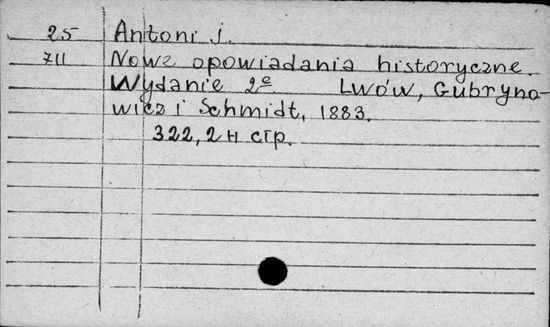 25 Antoni J.
711 Nowe opowiadania historyczne.
Wydanie 2e Lwów, Gubryno-
wicz i Schmidt, 1883.
322, 2 н стр.